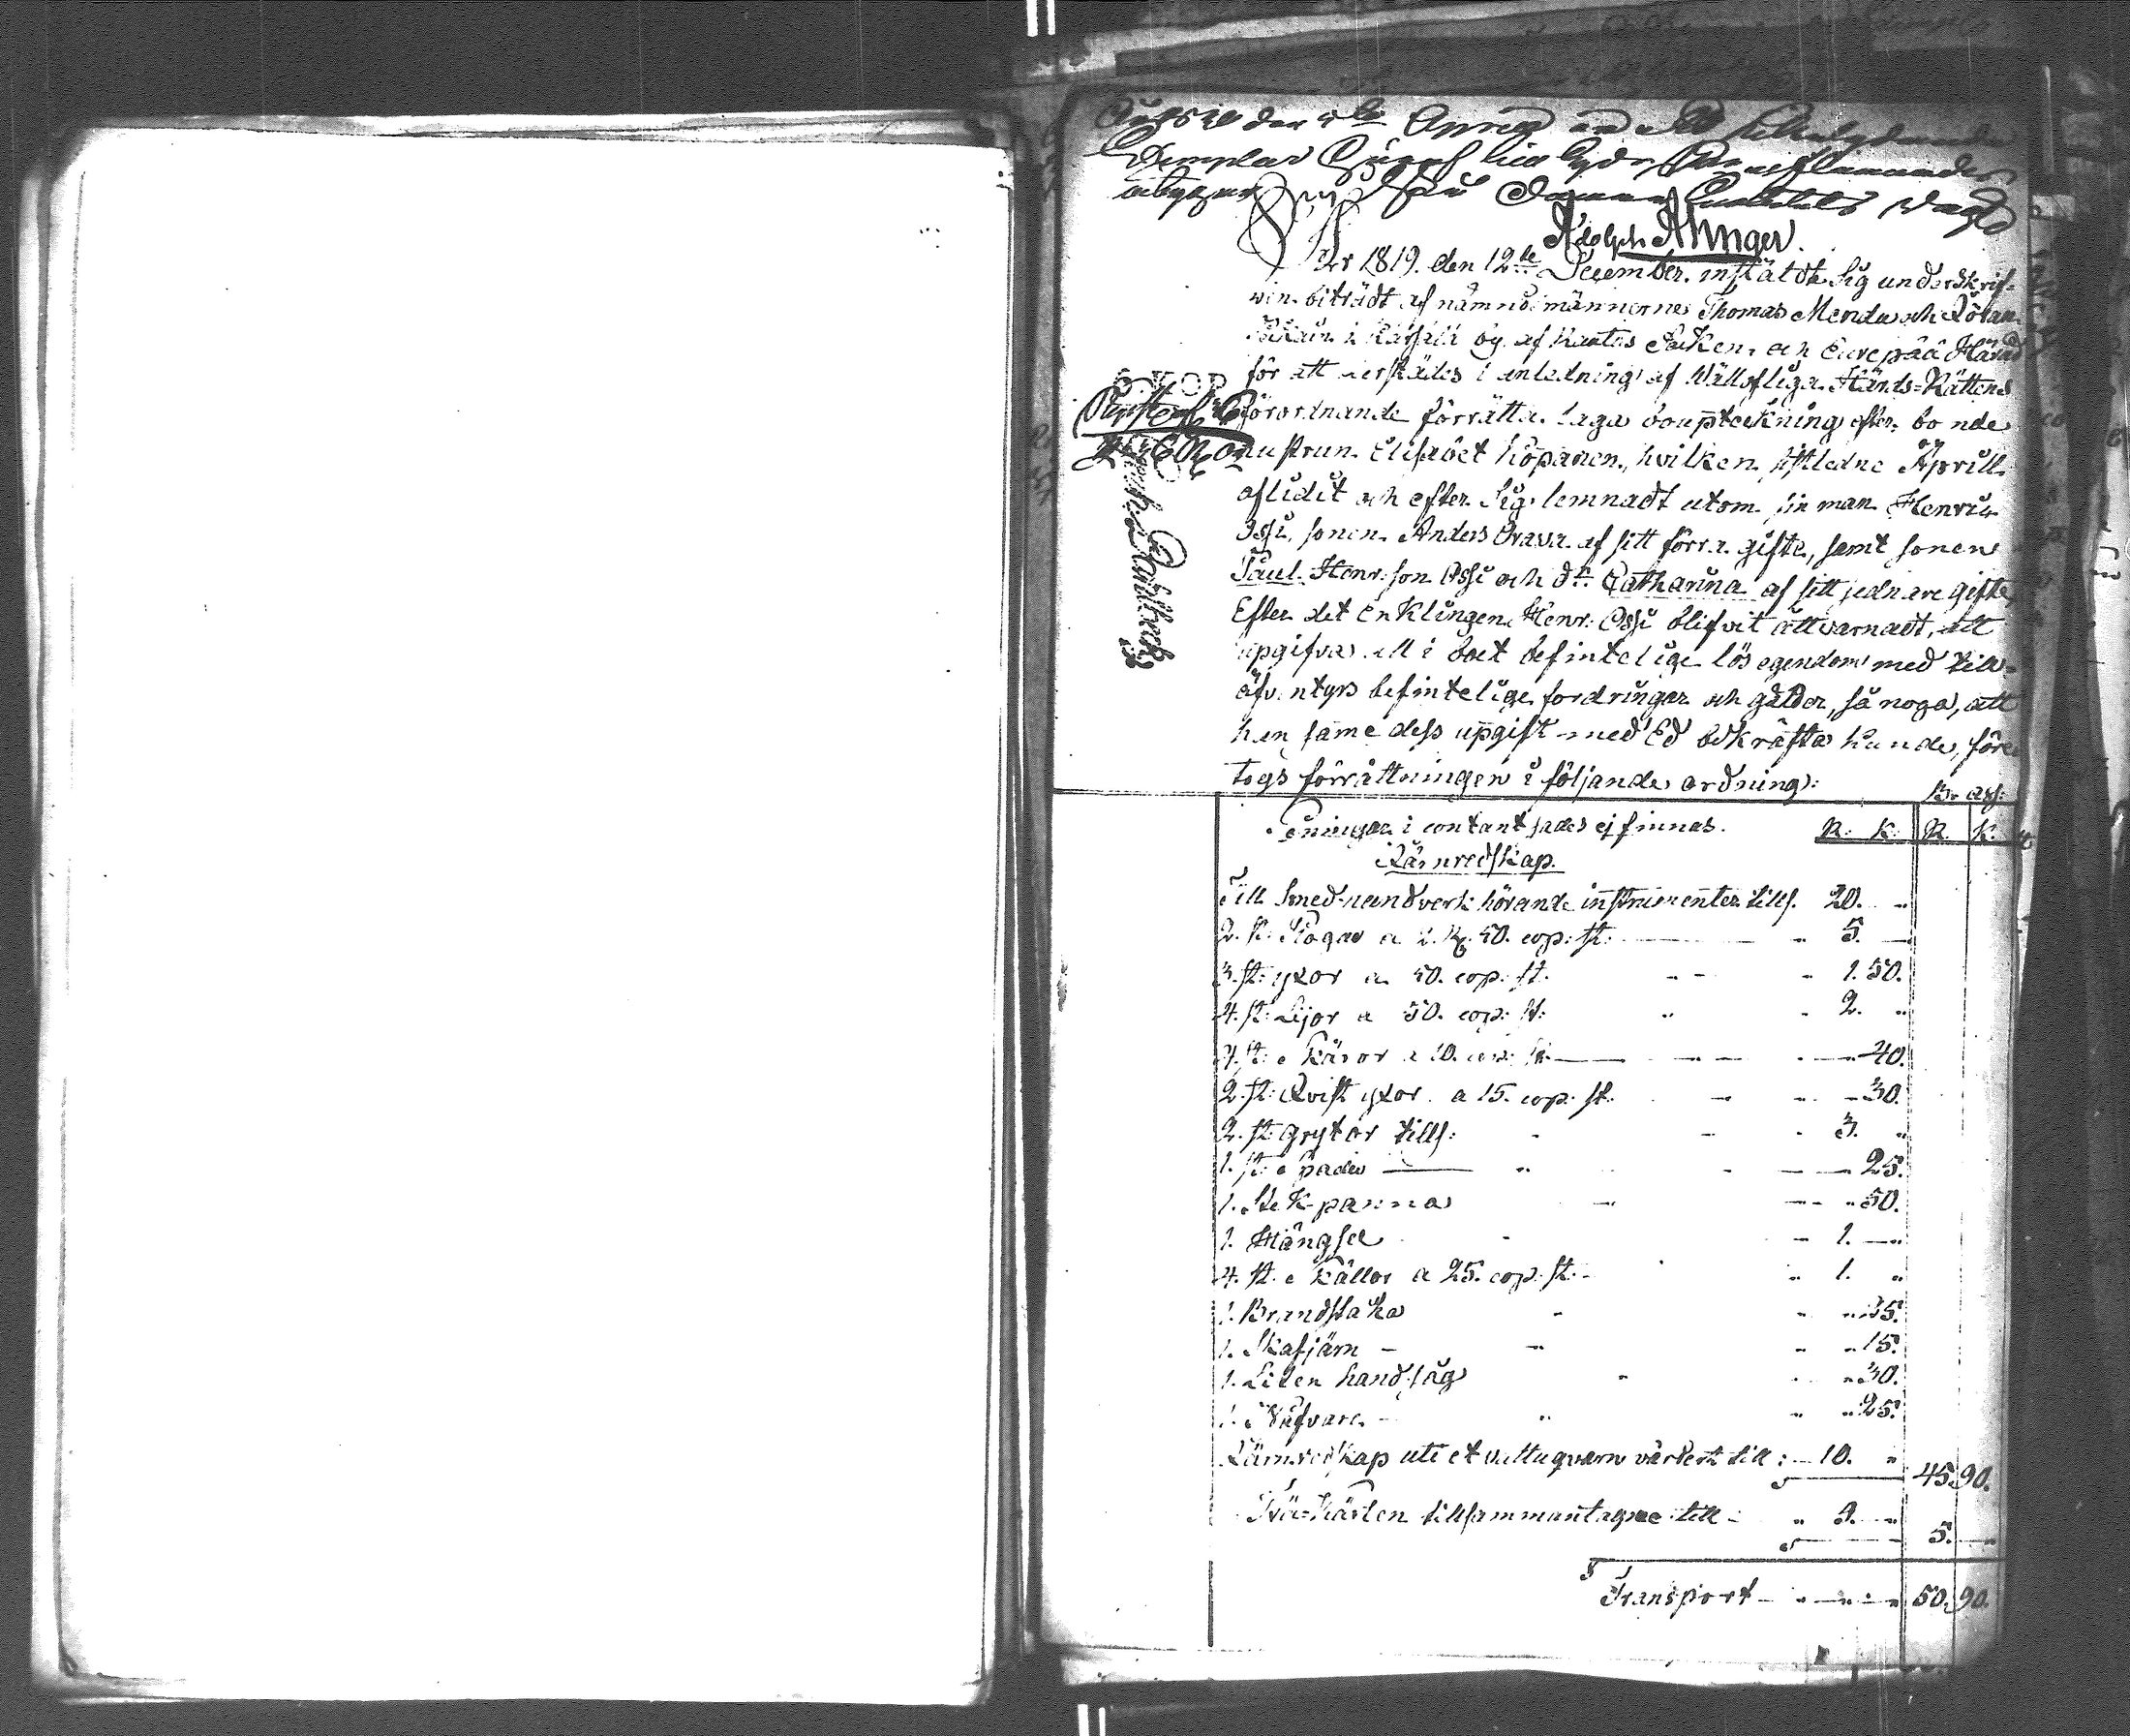 April
Exemplar
Adolph Alinger.
År 1819. den 12te December instälde sig underskrif=
ven biträdt af nämndemännerne Thomas Mendu och Johan
i by af Kautos Socken och Eurepää Härad
för att därstädes i anledning af Wällofliga Härds=Rättens
förordnande förrätta laga bouptekning efter bonde
hustrun Elisabet Kopanen, hvilken sistledne Aprill
aflidit och efter sig lemnadt utom sin man Henric
Ossi, sonen Anders Orava af sitt förra gifte, samt sonen
Paul Henr: son Ossi och dr Catharina af sitt sednare gifte,
Efter det Enklingen Henr: Ossi blifvit åtvarnadt, att
upgifva all i boet befintelige lösegendom med till=
äfventyrs befintelige fordringar och gälder, så noga, att
han same dess upgift med Ed bekräfta kunde, före
togs förrättningen i följande ordning:
B: ass:
Peningar i contant sades ej finnas. R: K: R. K.
Järnredskap.
Till Smed-handverk hörande instrumenter tills. 20. "
2. st: Plogar a 2. R. 50. cop: st: 5. —
3. st: yxor a 50. cop: st. 1. 50.
4. st: Lijor a 50. cop: st: 2. "
4. st: Skäror a 10. cop: st. 40.
2. st: Qvist yxor a 15. cop: st. 30.
2. st: grytor tills: 3. "
1. st: Spade 25.
1. Stekpanna 50.
1. Hängsel 1. —
4. st. Skällor a 25. cop: st: 1. "
1. Brandstaka 35.
1. Skafjärn 15.
1. Liten handsåg 30.
1. Nafvare 25.
Järnredskap uti et vattuqvarn värdert till: 10. " 45. 90.
Trä-Kärlen tillsammantagne till 5. " 5. —
Transport 50. 90.